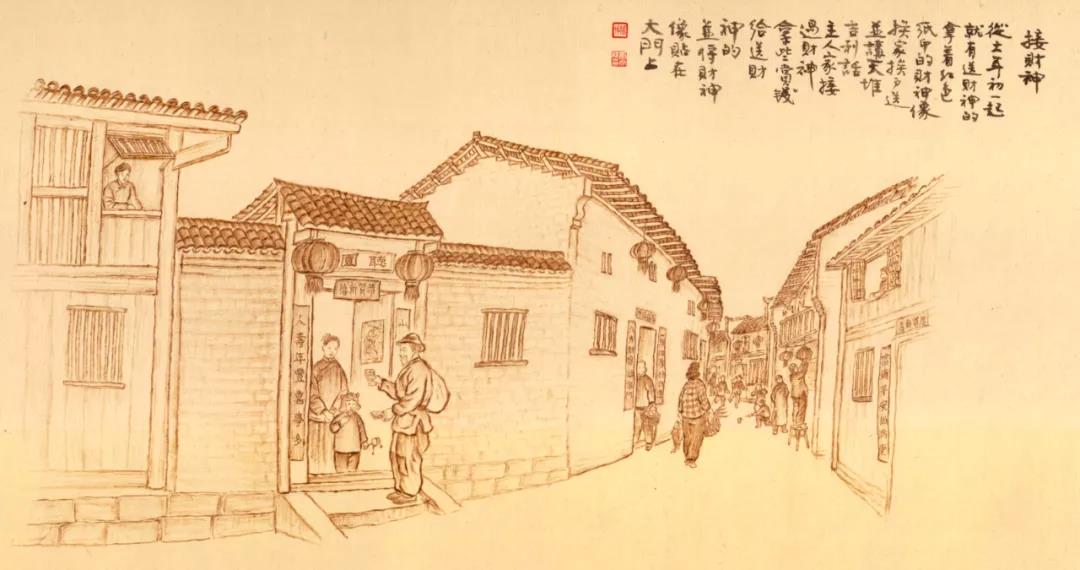 接財神
從大年初一起
就有送財神的
拿着紅色
紙印的財神像
挨家挨戶送
並講大堆
吉利話
主人家接
過財神
拿些零錢
給送財
神的
並將財神
像貼在
大門上
恭賀新禧
人壽年豐喜事多